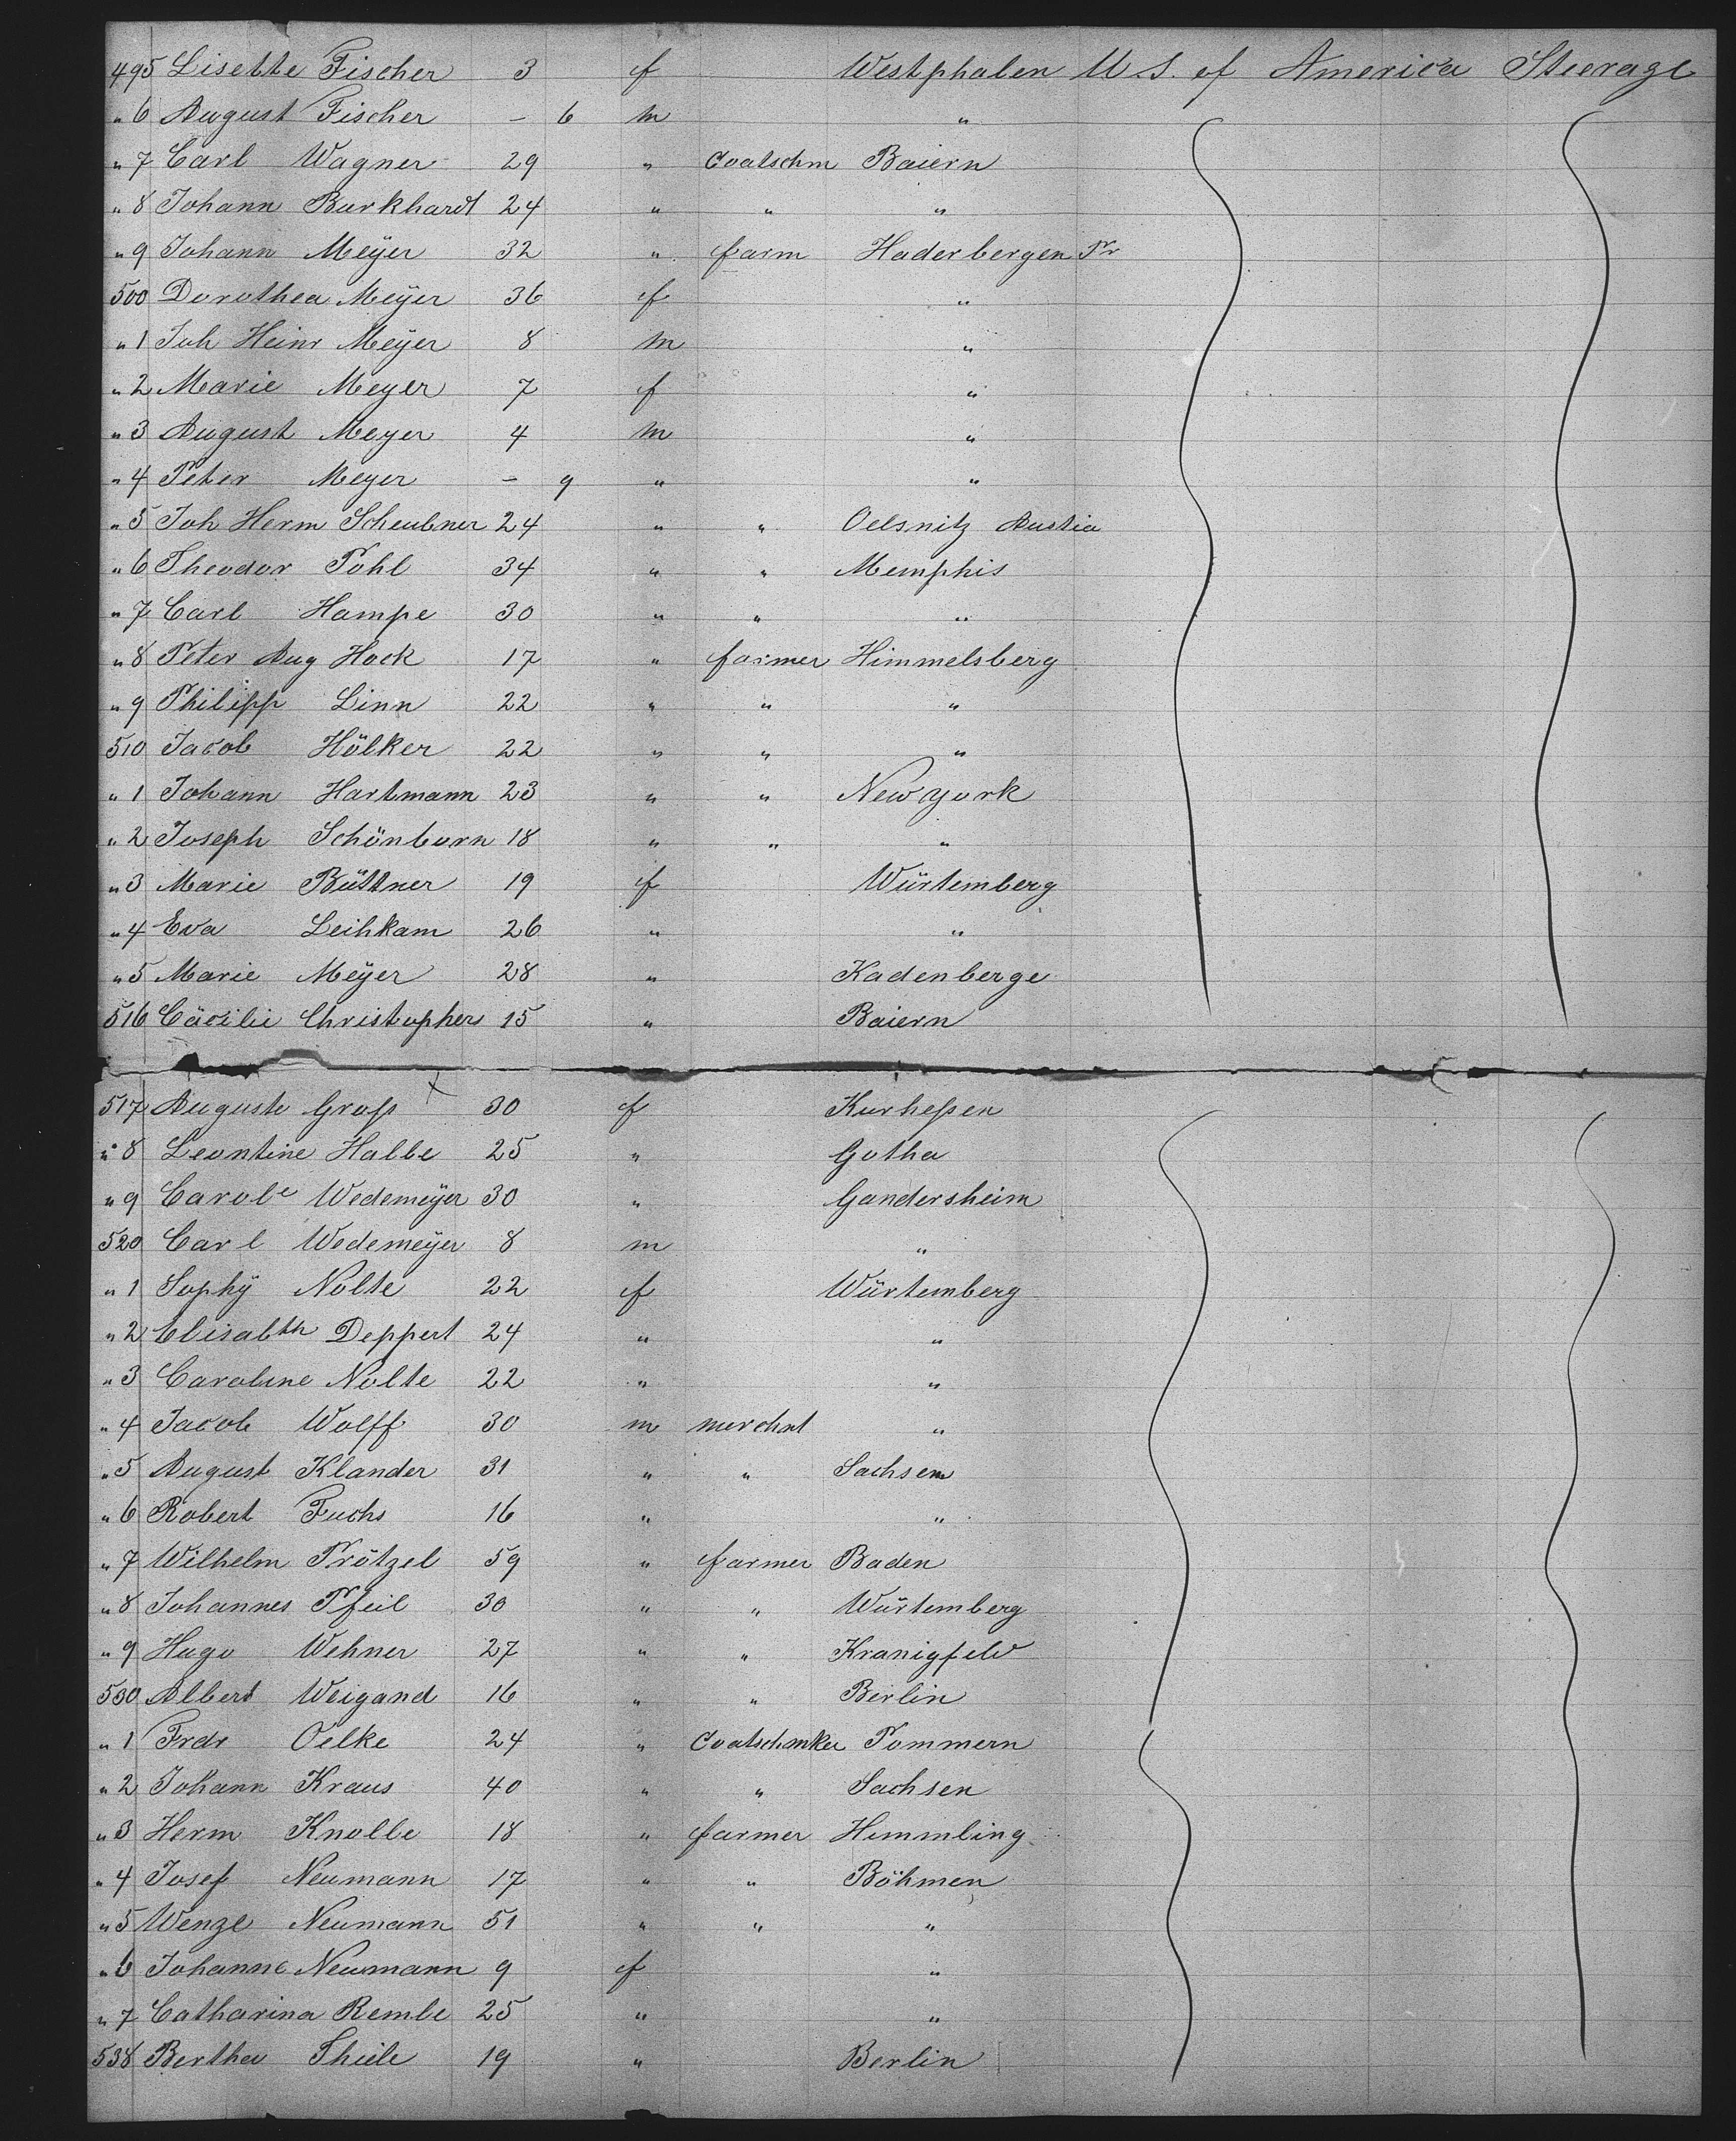 495 Lisette Fischer 3 f Westphalen U.S. of America Steerage
" 6 August Fischer – 6 m "
" 7 Carl Wagner 29 " Coatschm Baiern
" 8 Johann Burkhardt 24 " " "
" 9 Johann Meÿer 32 " farm Haderbergen Pr
500 Dorothea Meÿer 36 f "
" 1 Joh Heinr Meÿer 8 m "
" 2 Marie Meyer 7 f "
" 3 August Meyer 4 m "
" 4 Peter Meyer – 9 " "
" 5 Joh Herm Scheubner 24 " " Oelsnitz Austia
" 6 Theodor Pohl 34 " " Memphis
" 7 Carl Hampe 30 " " "
" 8 Peter Aug Hock 17 " farmer Himmelsberg
" 9 Philipp Linn 22 " " "
510 Jacob Hölker 22 " " "
" 1 Johann Hartmann 23 " " New York
" 2 Joseph Schönborn 18 " " "
" 3 Marie Büttner 19 f Würtemberg
" 4 Eva Leihkam 26 " "
" 5 Marie Meÿer 28 " Kadenberge
516 Cäcilie Christophers 15 " Baiern
517 Auguste Groſs x 30 f Kurheſsen
" 8 Leontine Halbe 25 " Gotha
" 9 Carole Wedemeÿer 30 " Gandersheim
520 Carl Wedemeÿer 8 m "
" 1 Sophÿ Nolte 22 f Würtemberg
" 2 Elisabth Deppert 24 " "
" 3 Caroline Nolte 22 " "
" 4 Jacob Wolff 30 m merchnt "
" 5 August Klander 31 " " Sachsen
" 6 Robert Fuchs 16 " "
" 7 Wilhelm Prötzel 59 " farmer Baden
" 8 Johannes Pfeil 30 " " Würtemberg
" 9 Hugo Wehner 27 " " Kranigfeld
530 Albert Weigand 16 " " Berlin
" 1 Frdr Oelke 24 " Coatschmker Pommern
" 2 Johann Kraus 40 " " Sachsen
" 3 Herm Knolle 18 " farmer Himmling
" 4 Josef Neumann 17 " " Böhmen
" 5 Wenzl Neumann 51 " " "
" 6 Johanne Neumann 9 f "
" 7 Catharina Remle 25 " "
538 Bertha Thiele 19 " Berlin